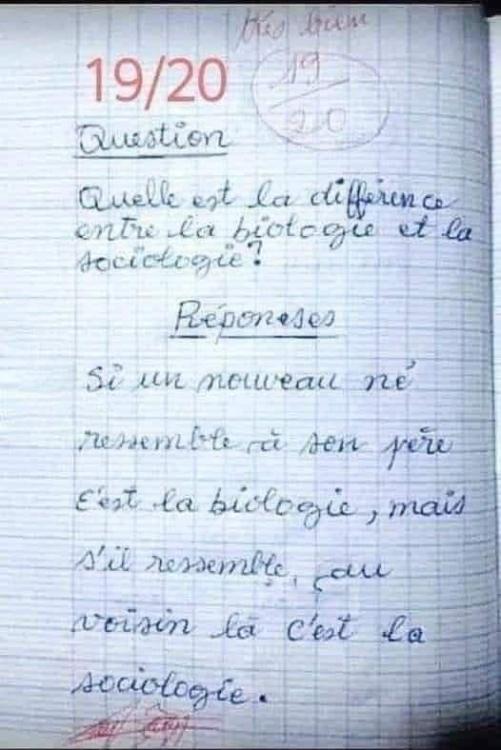 très bien
19/20
19
20
Question
Quelle est la différence
entre la biologie et la
sociologie?
Réponeses
Si un nouveau né
ressemble à son père
c'est la biologie, mais
s'il ressemble, au
voisin là c'est la
sociologie.